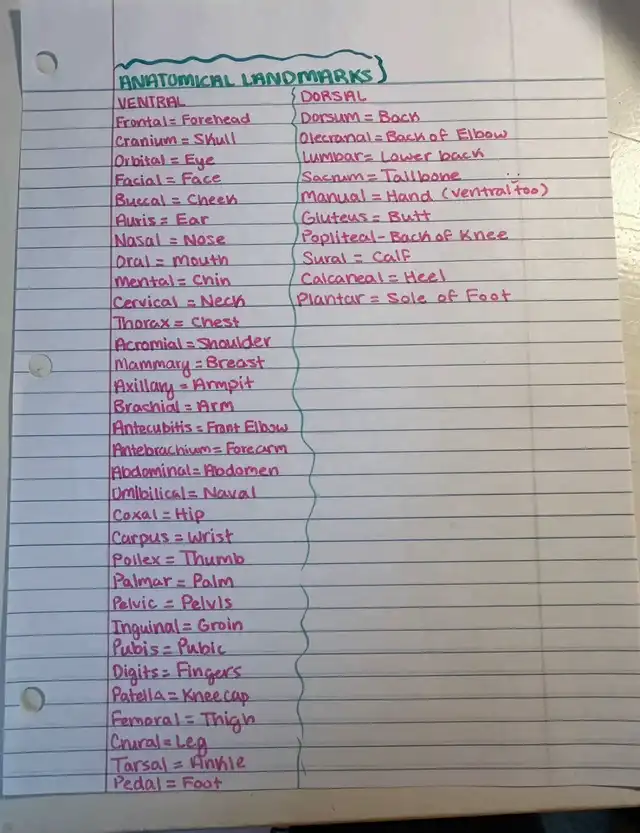 ANATOMICAL LANDMARKS
VENTRAL
Frontal = Forehead
Cranium = Skull
Orbital = Eye
Facial = Face
Buccal = Cheek
Auris = Ear
Nasal = Nose
Oral = Mouth
Mental = Chin
Cervical = Neck
Thorax = Chest
Acromial = Shoulder
Mammary = Breast
Axillary = Armpit
Brachial = Arm
Antecubitis = Front Elbow
Antebrachium = Forearm
Abdominal = Abdomen
Umlbilical = Naval
Coxal = Hip
Carpus = Wrist
Pollex = Thumb
Palmar = Palm
Pelvic = Pelvis
Inguinal = Groin
Pubis = Pubic
Digits = Fingers
Patella = Kneecap
Femoral = Thigh
Crural = Leg
Tarsal = Ankle
Pedal = Foot
DORSIAL
Dorsum = Back
Olecranal = Back of Elbow
Lumbar = Lower back
Sacrum = Tailbone
Manual = Hand (ventral too)
Gluteus = Butt
Popliteal - Back of Knee
Sural = Calf
Calcaneal = Heel
Plantar = Sole of Foot